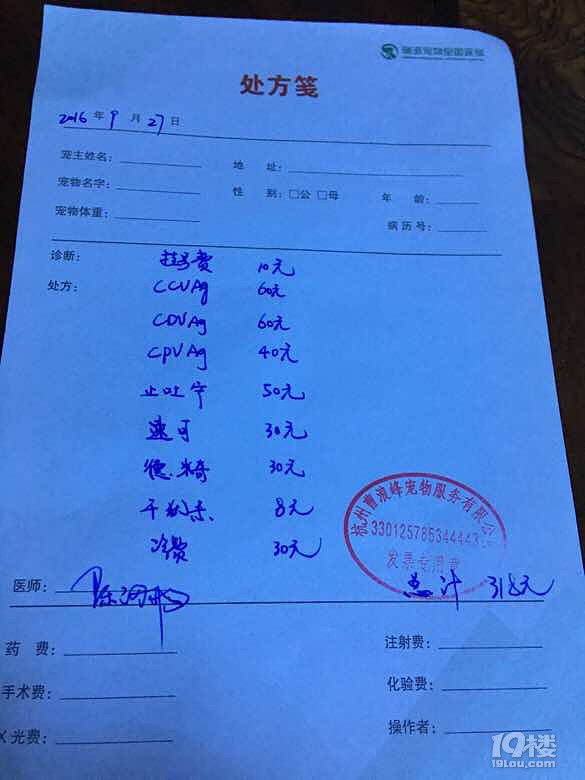 瑞派宠物全国连锁
处方笺
2016 年 9 月 27 日
宠主姓名: 地 址:
宠物名字: 性 别: □公 □母 年 龄:
宠物体重: 病历号:
诊断: 挂号费 10元
处方: CCVAg 60元
CDVAg 60元
CPVAg 40元
止吐宁 50元
速可 30元
德米奇 30元
干扰素 8元
冷费 30元
杭州曹浪峰宠物服务有限公
330125785344443
发票专用章
医师: 总计 318元
药 费: 注射费:
手术费: 化验费:
X光费: 操作者:
19楼
19lou.com